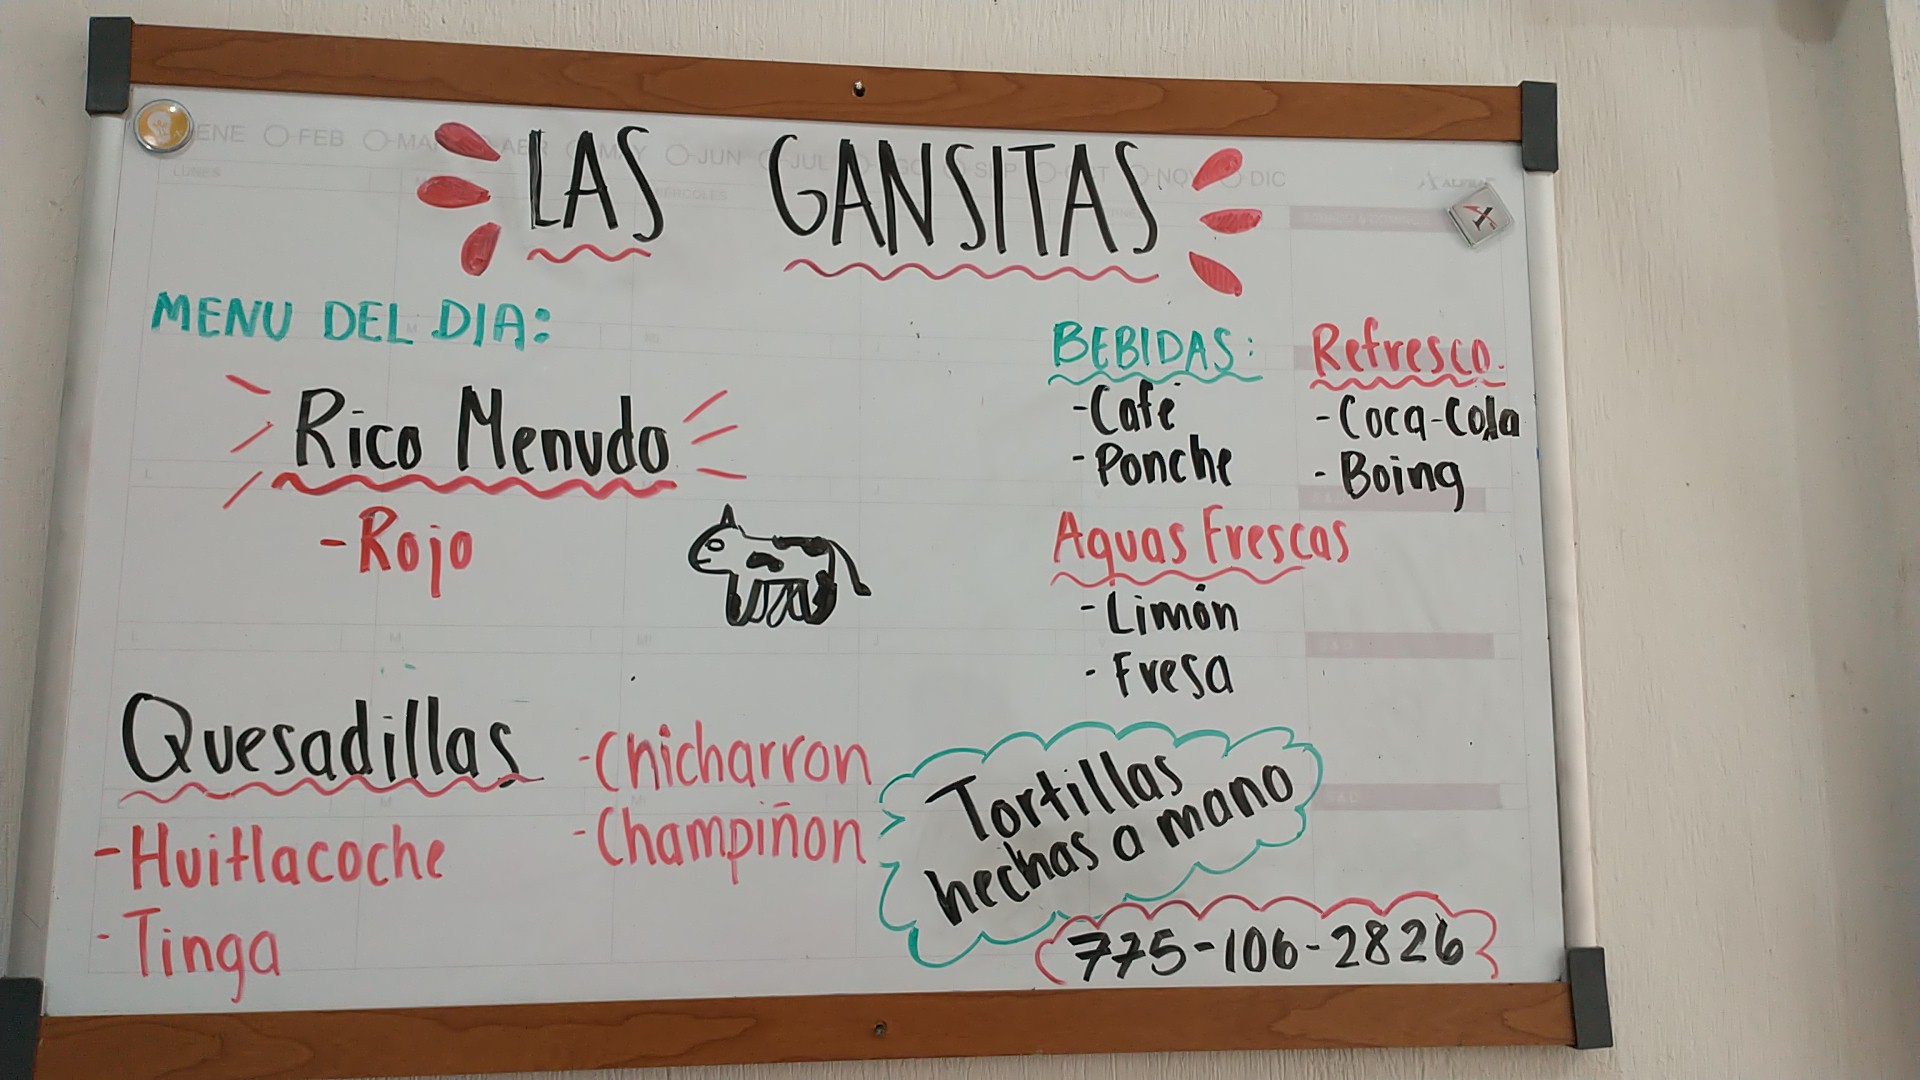 ENE FEB MAR ABR MAY JUN JUL AGO SEP OCT NOV DIC
LUNES
LAS GANSITAS
MENU DEL DIA:
Rico Menudo
-Rojo
BEBIDAS:
-Café
-Ponche
Refresco.
-Coca-Cola
-Boing
Aguas Frescas
-Limón
-Fresa
Quesadillas
-Huitlacoche
-Tinga
-Chicharron
-Champiñon
Tortillas
hechas a mano
775-106-2826